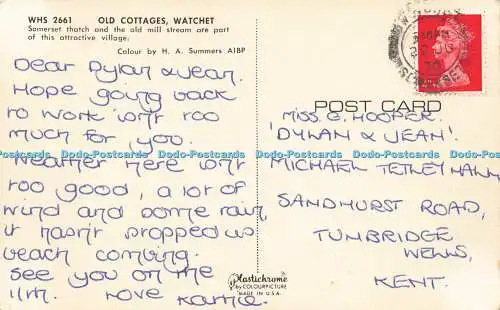 WHS 2661 OLD COTTAGES, WATCHET
Somerset thatch and the old mill stream are part
of this attractive village.
Colour by H. A. Summers AIBP
Dear Dylan & Jean.
Hope going back
to work isn't too
much for you.
Weather here isn't
too good, a lot of
wind and some rain,
it hasn't stopped us
beach combing.
See you on the
11th. Love
POST CARD
MISS. G. HOOPER.
'DYLAN & JEAN'.
MICHAEL TETLEY HALL
SANDHURST ROAD,
TUNBRIDGE
WELLS,
KENT.
Plastichrome
by COLOURPICTURE
MADE IN U.S.A.
SOMERSET
Dodo-Postcards Dodo-Postcards Dodo-Postcards Dodo-Postcards